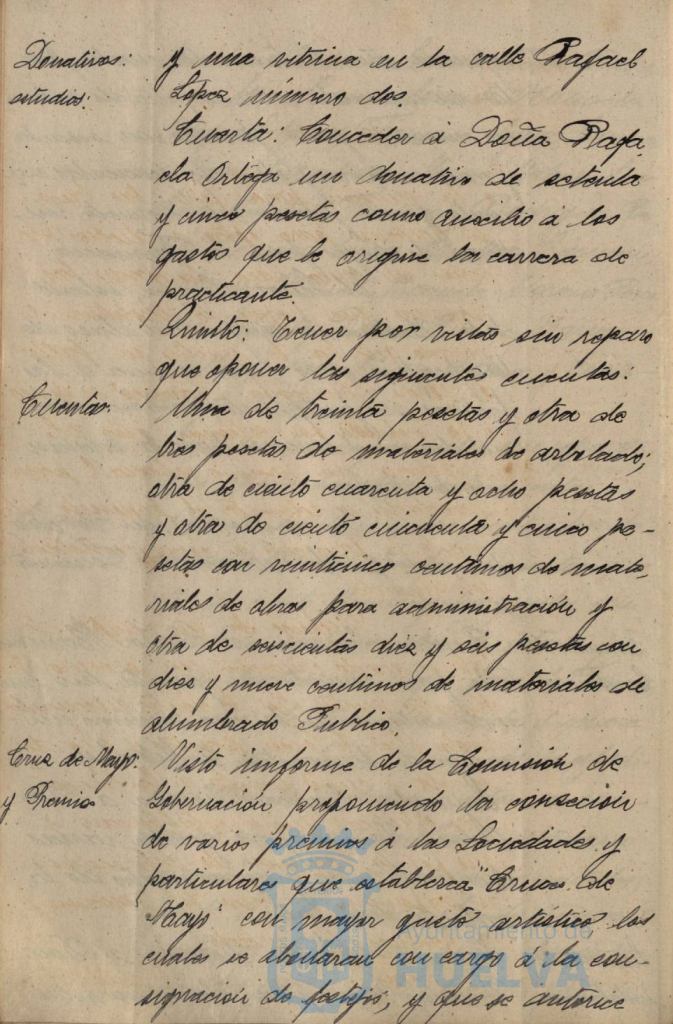 Donativos:
estudios:
y una vitrina en la calle Rafael
Lopez número dos.
Cuarta: Conceder á Doña Rafa
ela Ortega un donativo de setenta
y cinco pesetas como auxilio á los
gastos que le origine la carrera de
practicante.
Quinto: Tener por vistas sin reparo
que oponer las siguientes cuentas:
Cuentas.
Una de treinta pesetas y otra de
tres pesetas de materiales de arbolado;
otra de ciento cuarenta y ocho pesetas
y otra de ciento cincuenta y cinco pe-
setas con veinticinco centimos de mate,
riales de obras para administración y
otra de seiscientas diez y seis pesetas con
diez y nueve centimos de materiales de
alumbrado Publico.
Cruz de Mayo:
y Premios
Visto imforme de la Comisión de
Gobernación proponiendo la conseción
de varios premios á las Sociedades y
particulares que establezca "Cruces de
Mayo" con mayor gusto artístico los
cuales se abonaran con cargo á la con-
signación de festejos, y que se autorice
Ayuntamiento de
HUELVA